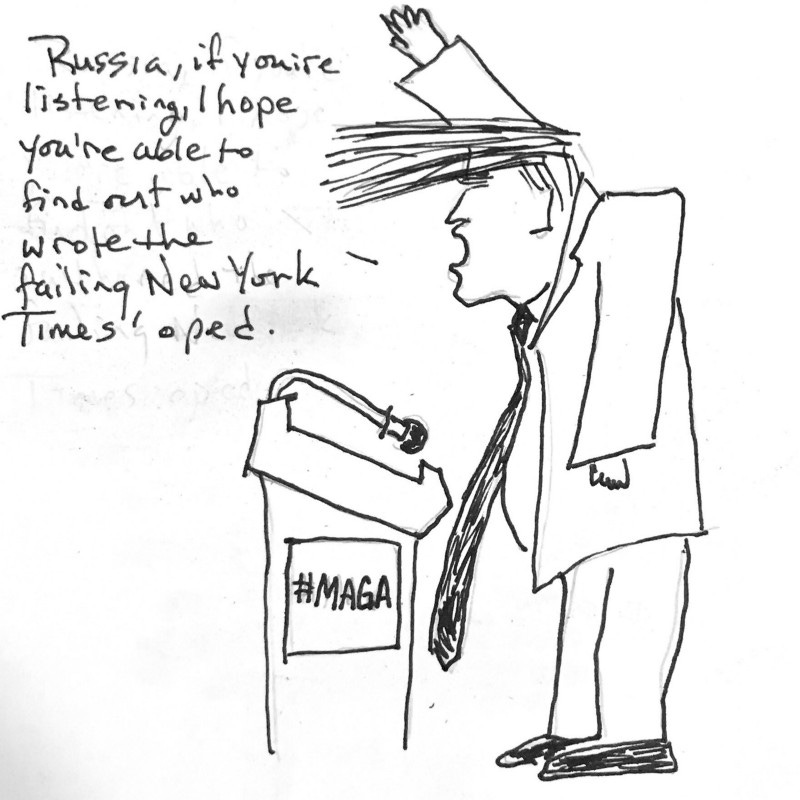 Russia, if you're
listening, I hope
you're able to
find out who
wrote the
failing New York
Times' oped.
#MAGA